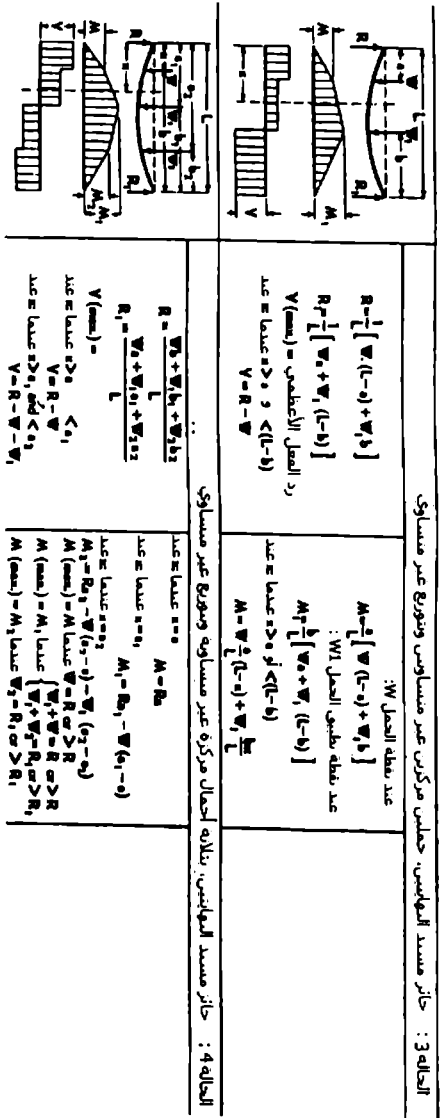 الحالة 3 : جائز مستند النهايتين، حملين مركزين غير متساويين وبتوزيع غير متساوي
L
a
b
x
W
W₁
R
R₁
M
M₁
V
R=1/L [W(L-a)+W₁b]
R₁=1/L [Wa+W₁(L-b)]
V(max) = رد الفعل الأعظمي
عند x عندما x>a و <(L-b)
V=R-W
عند نقطة الحمل W:
M=a/L [W(L-a)+W₁b]
عند نقطة تطبيق الحمل W1:
M₁=b/L [Wa+W₁(L-b)]
عند x عندما x>a أو <(L-b)
M=W a/L (L-x)+W₁ bx/L
الحالة 4 : جائز مستند النهايتين، بثلاثة أحمال مركزة غير متساوية وبتوزيع غير متساوي
L
a
a₁
a₂
b
b₁
b₂
x
W
W₁
W₂
R
R₁
M
M₁
M₂
V
R=(Wb+W₁b₁+W₂b₂)/L
R₁=(Wa+W₁a₁+W₂a₂)/L
V(max)=
عند x عندما x>a <a₁
V=R-W
عند x عندما x>a₁ and <a₂
V=R-W-W₁
عند x عندما x=a
M=Ra
عند x عندما x=a₁
M₁=Ra₁-W(a₁-a)
عند x عندما x=a₂
M₂=Ra₂-W(a₂-a)-W₁(a₂-a₁)
M(max)=M عندما W=R or >R
M(max)=M₁ عندما { W₁+W=R or >R
W₁+W₂=R₁ or >R₁
M(max)=M₂ عندما W₂=R₁ or >R₁